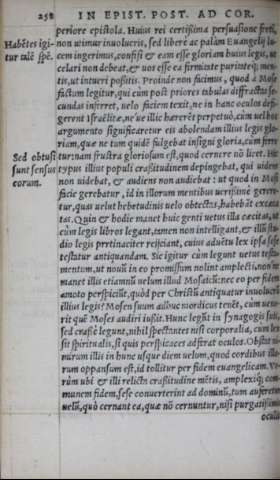 258 IN EPIST. POST. AD COR.
periore epistola. Huius rei certissima persuasione freti,
Habētes igi- non utimur inuolucris, sed liberè ac palàm Euangelij lu-
tur talē spē. cem ingerimus, confisi & eam esse gloriam huius legis, ut
celari non debeat, & uos esse ea firmitate puritatéq; men-
tis, ut intueri possitis. Proinde non facimus, quod à Mose
factum legitur, qui cùm post priores tabulas diffractas se-
cundas inferret, uelo faciem texit, ne in hanc oculos defi-
gerent Israëlitæ, ne'ue illic hærerēt perpetuò, cùm uel hoc
argumento significaretur eis abolendam illius legis glo-
riam, quæ ne tum quidē fulgebat insigni gloria, cùm ferre
Sed obtusi tur: nam frustra gloriosum est, quod cernere nō licet. Hic
sunt sensus typus illius populi crassitudinem depingebat, qui uidens
eorum. non uidebat, & audiens non audiebat: ut quod in Mosi
facie gerebatur, id in illorum mentibus uerissimè gerere-
tur, quas uelut hebetudinis uelo obtectas, habebāt excæca
tas. Quin & hodie manet huic genti uetus illa cæcitas, ut
cùm legis libros legant, tamen non intelligant, & illi stu-
dio legis prætinaciter reijciant, cuius aduētu lex ipsa sese
testatur antiquandam. Sic igitur cùm legunt uetus testa-
mentum, ut nouū in eo promissum nolint amplecti, nónne
manet illis etiamnū uelum illud Mosaicū: nec eo per fidem
amoto perspiciūt, quòd per Christū antiquatur inuolucrū
illius legis? Mosen suum adhuc mordicus tenēt, cùm uene-
rit quē Moses audiri iussit. Hunc legūt in synagogis suis,
sed crassè legunt, nihil spectantes nisi corporalia, cum lex
sit spiritualis, si quis perspicaces adferat oculos. Obstat ni-
mirum illis in hunc usque diem uelum, quod cordibus illo-
rum oppansum est, id tollitur per fidem euangelicam. Ve-
rùm ubi & illi relicta crassitudine mētis, amplexiq; com-
munem fidem, sese conuerterint ad dominū, tum auferetur
uelū, quò cernant ea, quæ nō cernuntur, nisi purgatissimis
oculis